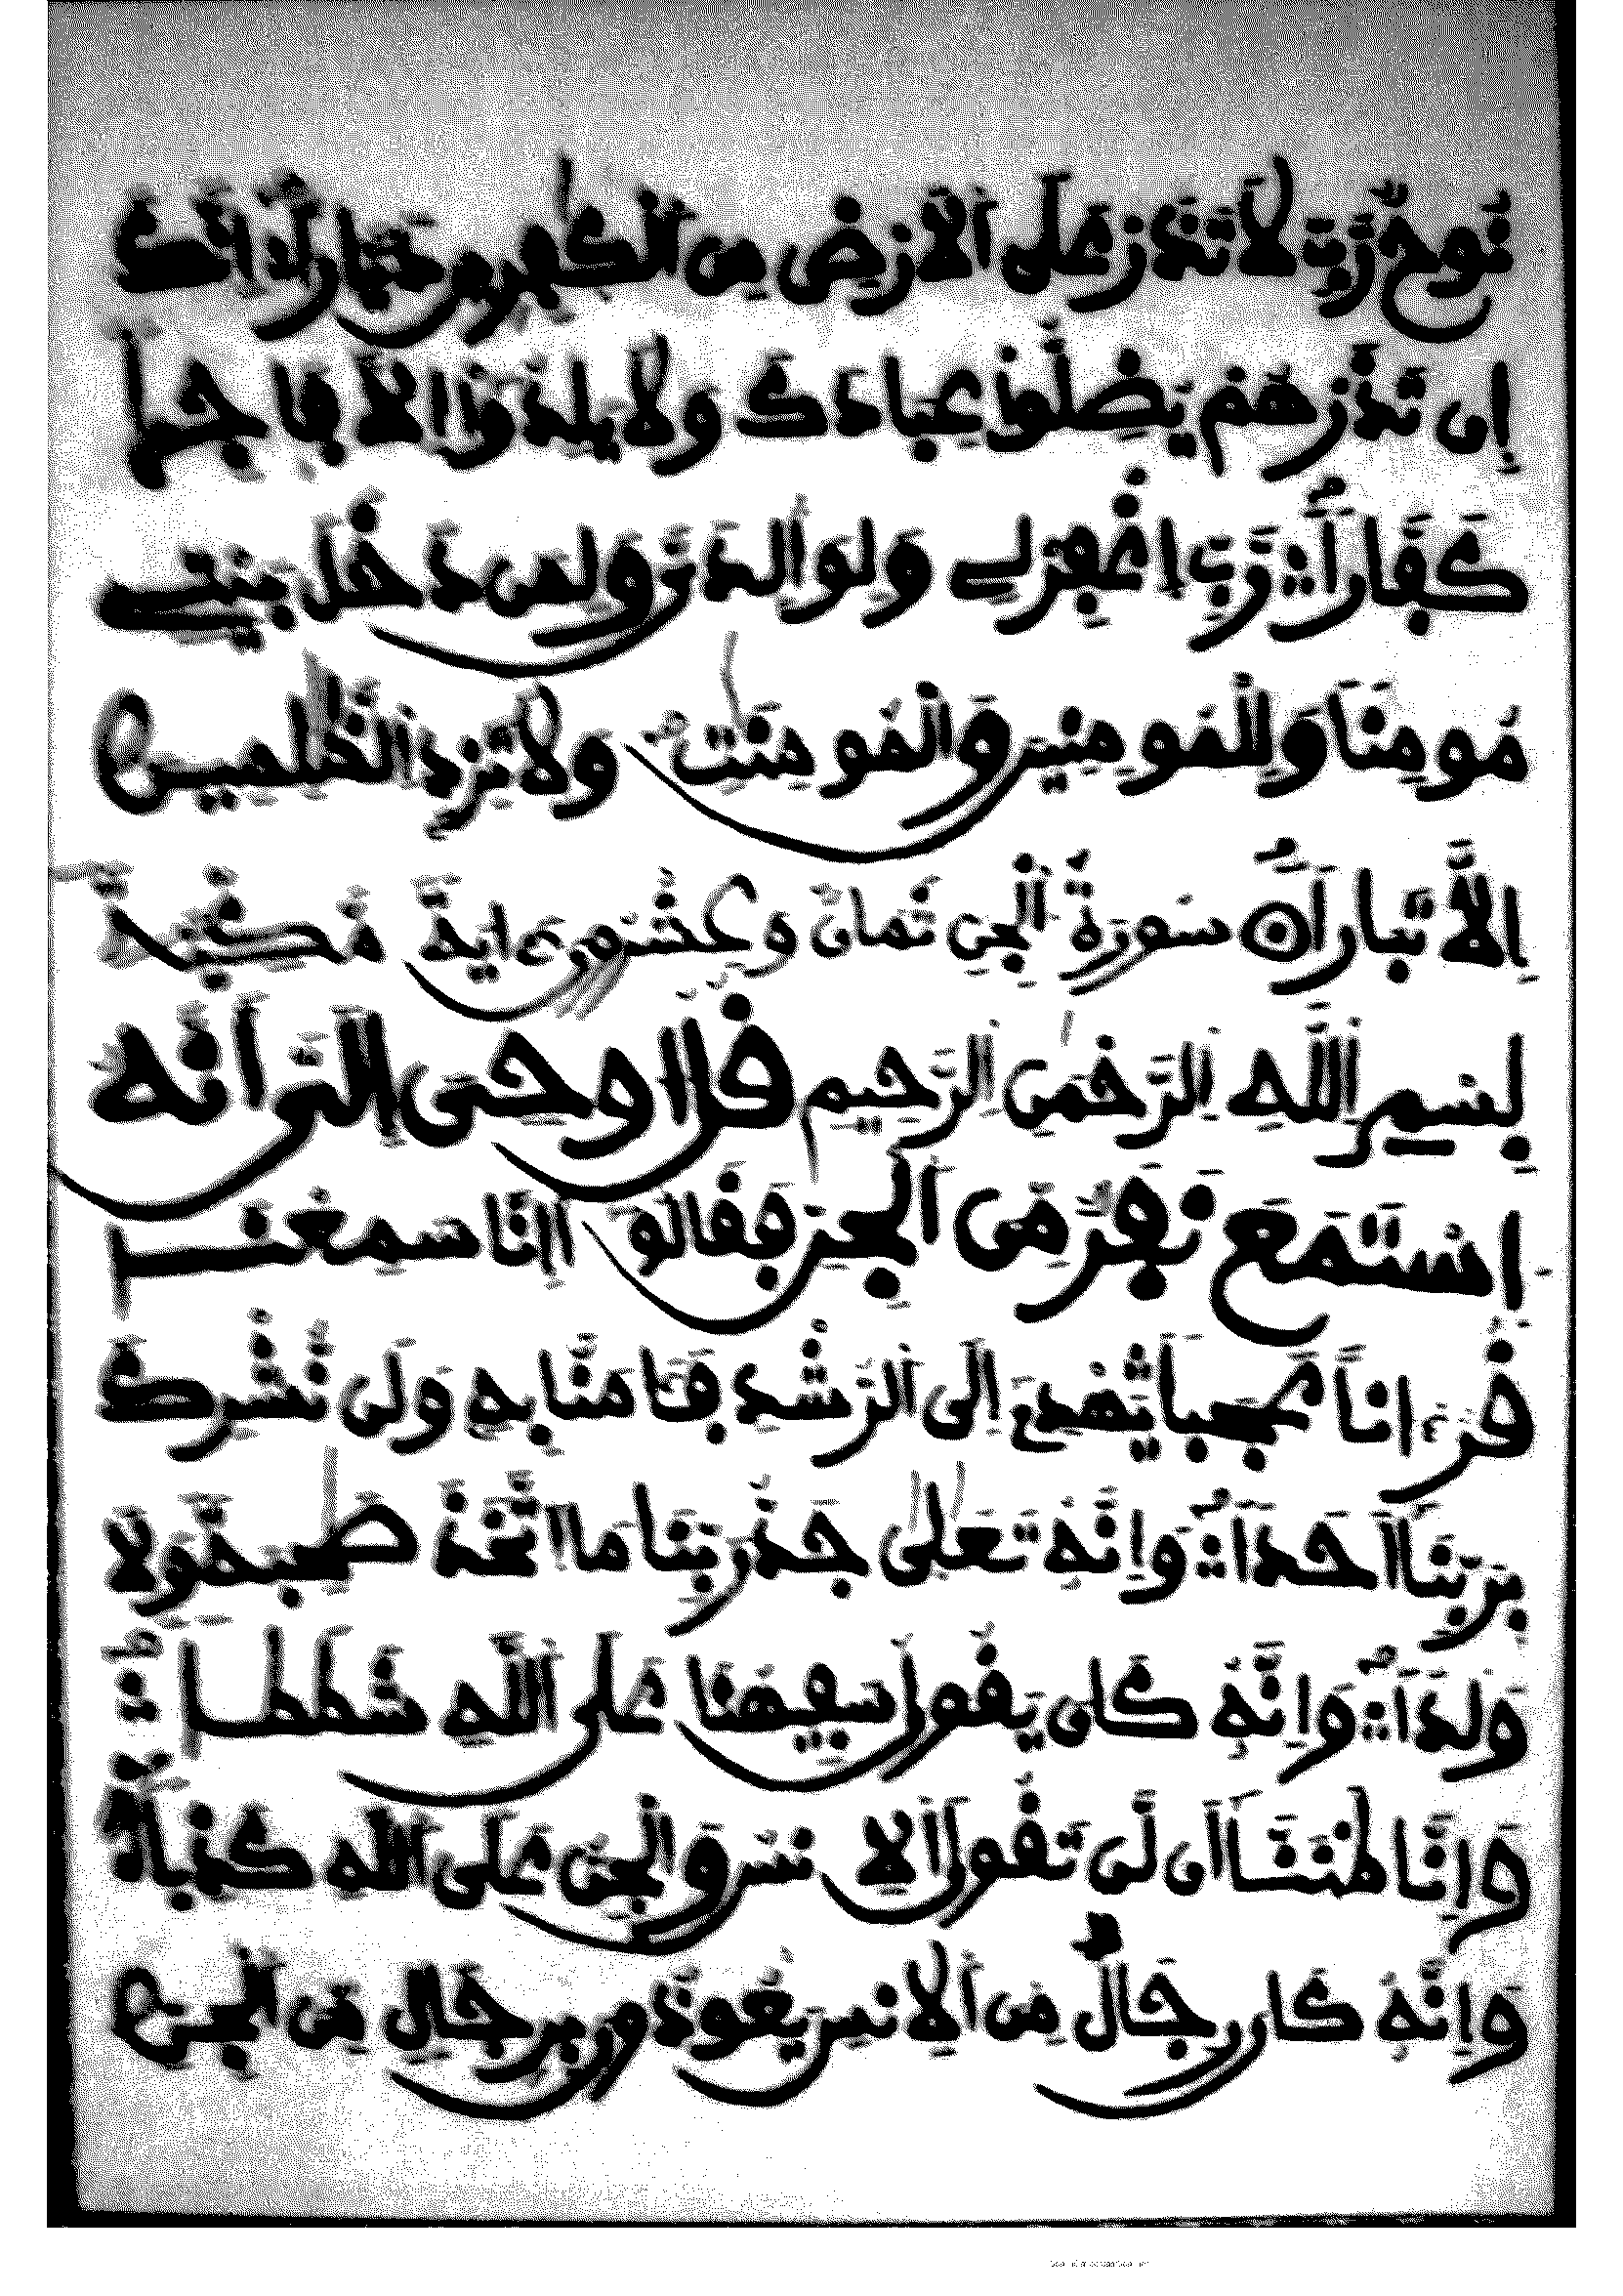 نُوحٌ رَّبِّ لَا تَذَرْ عَلَى اَ۬لْأَرْضِ مِنَ اَ۬لْكٰفِرِينَ دَيَّاراً اِنَّكَ
إِن تَذَرْهُمْ يُضِلُّواْ عِبَادَكَ وَلَا يَلِدُوٓاْ إِلَّا فَاجِراٗ
كَفَّاراٗ رَّبِّ اِ۪غْفِرْ لِے وَلِوَٰلِدَيَّ وَلِمَن دَخَلَ بَيْتِے
مُومِناٗ وَلِلْمُومِنِينَ وَالْمُومِنَٰتِ وَلَا تَزِدِ اِ۬لظَّٰلِمِينَ
إِلَّا تَبَاراً سُورَةُ الْجِنِّ ثَمَانٌ وَعِشْرُونَ ءَايَةً مَكِّيَّةٌ
بِسْمِ اِ۬للَّهِ اِ۬لرَّحْمَٰنِ اِ۬لرَّحِيمِ قُلُ ا۟وحِيَ إِلَيَّ أَنَّهُ
اُ۪سْتَمَعَ نَفَرٌ مِّنَ اَ۬لْجِنِّ فَقَالُوٓاْ إِنَّا سَمِعْنَا
قُرْءَاناً عَجَباٗ يَهْدِے إِلَى اَ۬لرُّشْدِ فَـَٔامَنَّا بِهِۦ وَلَن نُّشْرِكَ
بِرَبِّنَآ أَحَداٗ وَإِنَّهُۥ تَعَٰلَىٰ جَدُّ رَبِّنَا مَا اَ۪تَّخَذَ صَٰحِبَةٗ وَلَا
وَلَداٗ وَإِنَّهُۥ كَانَ يَقُولُ سَفِيهُنَا عَلَى اَ۬للَّهِ شَطَطاٗ
وَإِنَّا ظَنَنَّآ أَن لَّن تَقُولَ اَ۬لْإِنسُ وَالْجِنُّ عَلَى اَ۬للَّهِ كَذِباٗ
وَإِنَّهُۥ كَانَ رِجَالٌ مِّنَ اَ۬لْإِنسِ يَعُوذُونَ بِرِجَالٍ مِّنَ اَ۬لْجِنِّ